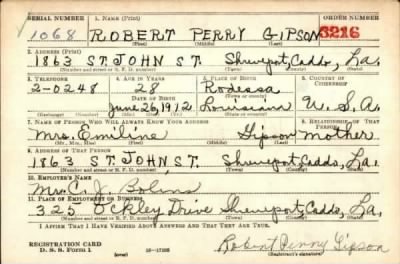 SERIAL NUMBER 1. NAME (Print) ORDER NUMBER
1068 ROBERT PERRY GIPSON 3216
(First) (Middle) (Last)
2. ADDRESS (Print)
1863 ST. JOHN ST. Shreveport, Caddo, La.
(Number and street or R. F. D. number) (Town) (County) (State)
3. TELEPHONE 4. AGE IN YEARS 5. PLACE OF BIRTH 6. COUNTRY OF CITIZENSHIP
2-0248 28 Rodessa
DATE OF BIRTH (Town or county)
June 26, 1912 Louisiana U. S. A.
(Exchange) (Number) (Mo.) (Day) (Yr.) (State or country)
7. NAME OF PERSON WHO WILL ALWAYS KNOW YOUR ADDRESS 8. RELATIONSHIP OF THAT PERSON
Mrs. Gipson mother
(Mr., Mrs., Miss) (First) (Middle) (Last)
9. ADDRESS OF THAT PERSON
1863 ST. JOHN, ST. Shreveport, Caddo, La.
(Number and street or R. F. D. number) (Town) (County) (State)
10. EMPLOYER'S NAME
Mr. C. J.
11. PLACE OF EMPLOYMENT OR BUSINESS
325 Ockley Drive Shreveport, Caddo, La.
(Number and street or R. F. D. number) (Town) (County) (State)
I AFFIRM THAT I HAVE VERIFIED ABOVE ANSWERS AND THAT THEY ARE TRUE.
REGISTRATION CARD
D. S. S. Form 1 (over) Robert Perry Gipson
(Registrant's signature)